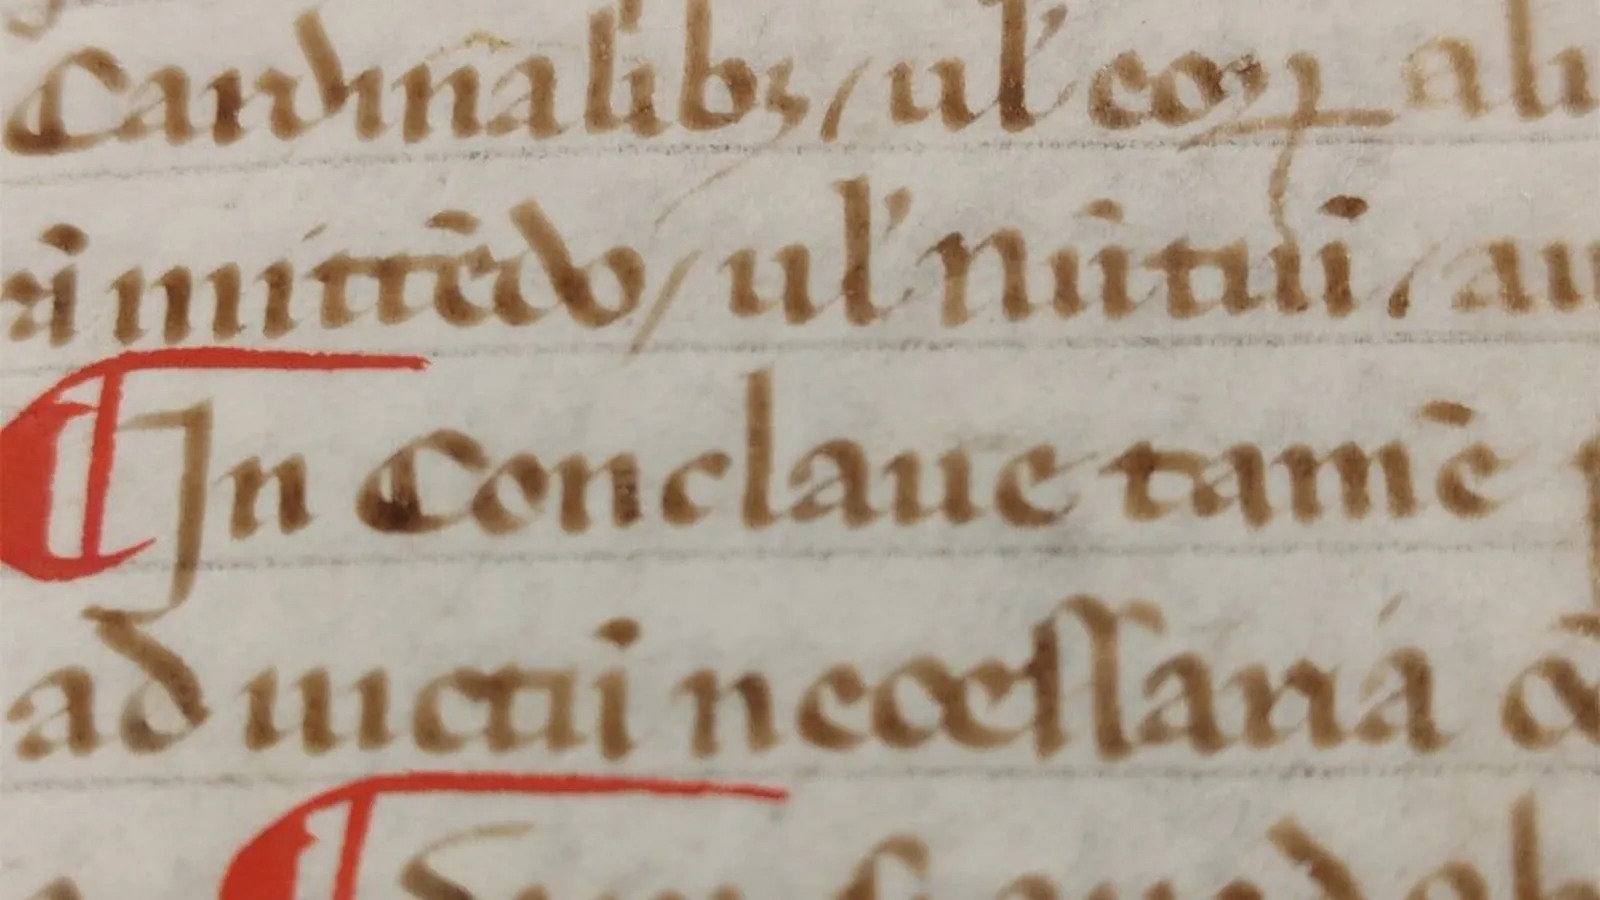 Cardīnalibꝫ / ul' eoꝝ ali
ri mittēdo / ul' nūtui , au
¶ In Conclaue tamē
ad uictui necessaria